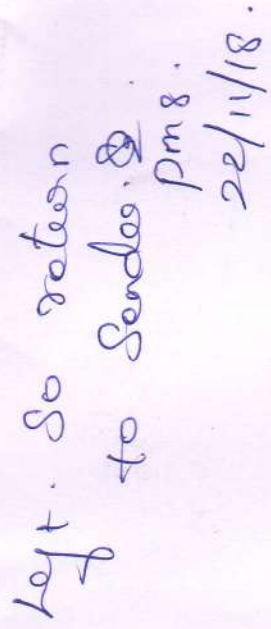 Left. So return
to Sender.
Pm 8.
22/11/18.